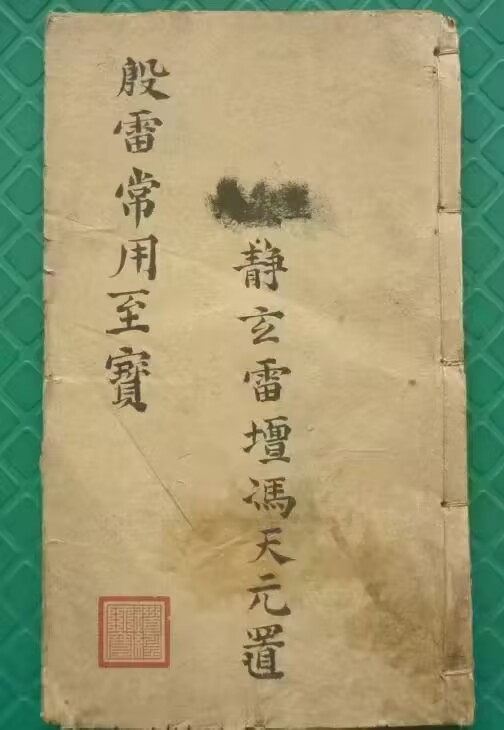 靜玄雷壇馮天元置
殷雷常用至寳